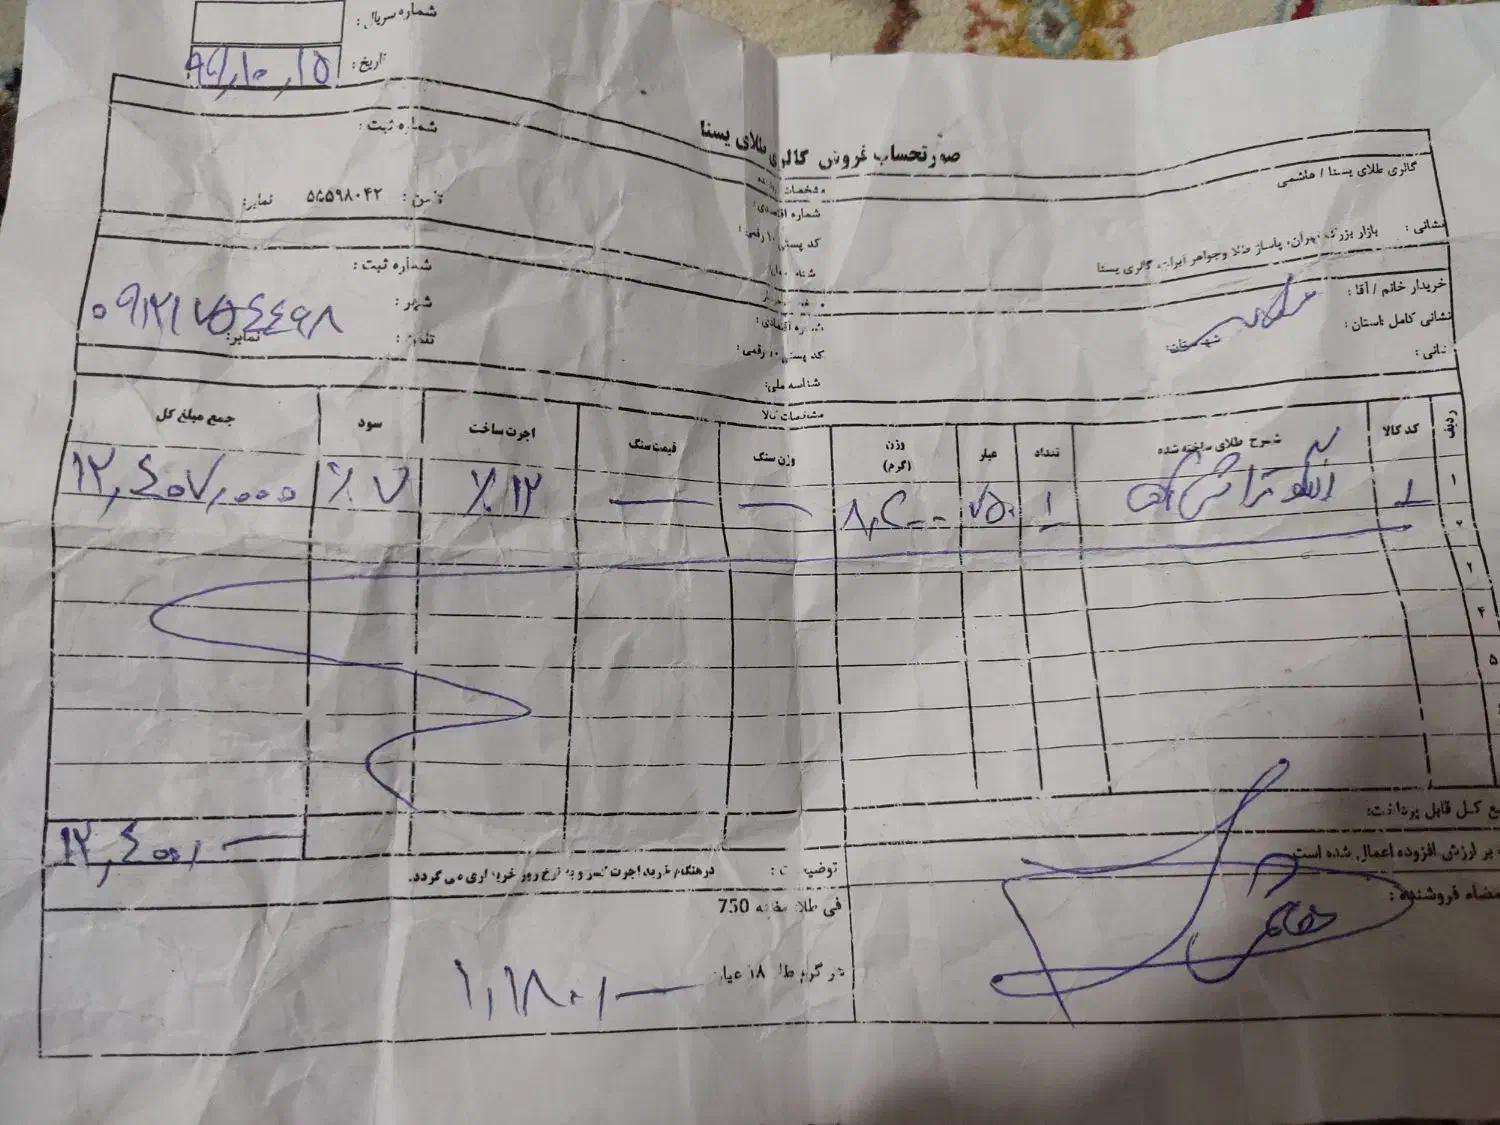 شماره سریال :
تاریخ : ۹۹,۱۰,۱۵
صورتحساب فروش گالری طلای یسنا
گالری طلای یسنا / هاشمی
شماره ثبت :
مشخصات
شماره اقتصادی :
نشانی : بازار بزرگ تهران، پاساژ طلا و جواهر ایران، گالری یسنا
کد پستی ۱۰ رقمی :
تلفن : ۵۵۵۹۸۰۴۲ نمابر:
شناسه ملی:
خریدار خانم / آقا :
شماره ثبت :
نشانی کامل :استان : شهرستان:
شماره اقتصادی :
شهر :
نشانی :
کد پستی ۱۰ رقمی :
تلفن : ۰۹۱۲۱۷۵۴۴۹۸ نمابر:
شناسه ملی:
مشخصات کالا
ردیف کد کالا شرح طلای ساخته شده تعداد عیار وزن (گرم) وزن سنگ قیمت سنگ اجرت ساخت سود جمع مبلغ کل
۱ ۱ النگو تراش ۱ ۷۵۰ ۸,۲۰۰ — — ٪۱۲ ٪۷ ۱۲,۴۰۷,۰۰۰
۲
۳
۴
۵
جمع کل قابل پرداخت: ۱۲,۴۰۰,—
بر ارزش افزوده اعمال شده است
توضیحات : در هنگام خرید اجرت کسر و به نرخ روز خریداری می گردد.
امضاء فروشنده :
فی طلا 750
هر گرم طلا ۱۸ عیار ۱,۱۸۰,—